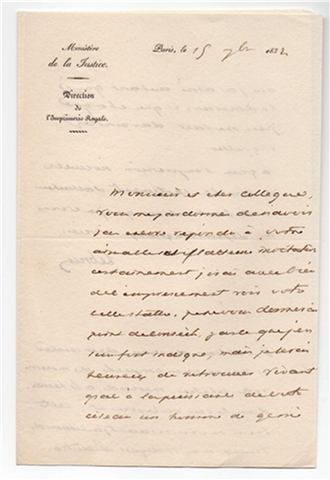 Ministère
de la Justice.
Direction
de
l'Imprimerie Royale.
Paris, le 15 9bre 1832
Monsieur et cher collegue,
vous me pardonnerez de n'avoir
pas encore repondu à votre
aimable et flatteuse invitation
certainement j'irai avec bien
de l'empressement voir votre
belle statue, pas pour donner un
point de conseil, parce que j'en
suis fort indigne, mais je serai
heureux de retrouver vivant
grace à la puissance de votre
ciseau un homme de génie